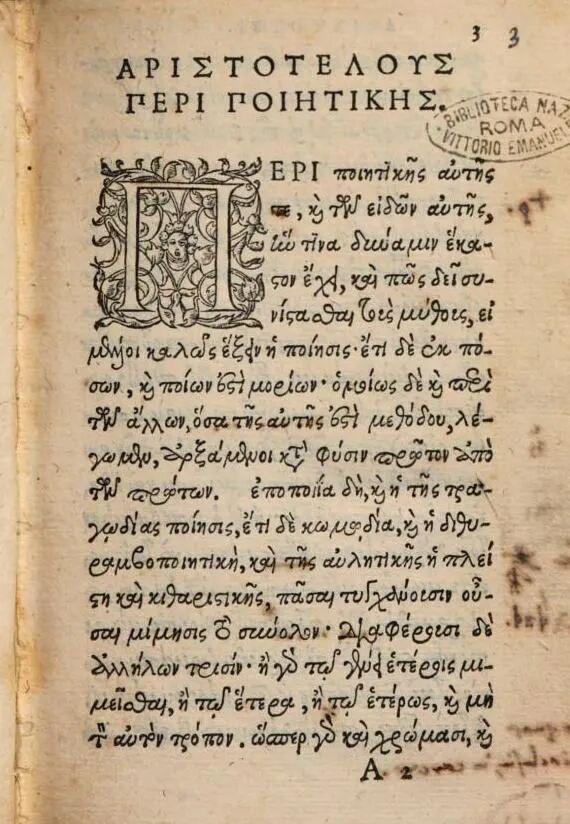 3 3
ΑΡΙΣΤΟΤΕΛΟΥΣ
ΠΕΡΙ ΠΟΙΗΤΙΚΗΣ.
BIBLIOTECA NAZ
ROMA
VITTORIO EMANUEL
ΠΕΡΙ ποιητικῆς αὐτῆς
τε, καὶ τῶν εἰδῶν αὐτῆς,
ἥν τινα δύναμιν ἕκα-
στον ἔχει, καὶ πῶς δεῖ συ-
νίστασθαι τοὺς μύθους, εἰ
μέλλοι καλῶς ἕξειν ἡ ποίησις· ἔτι δὲ ἐκ πό-
σων, καὶ ποίων ἐστὶ μορίων· ὁμοίως δὲ καὶ περὶ
τῶν ἄλλων, ὅσα τῆς αὐτῆς ἐστὶ μεθόδου, λέ-
γωμεν, ἀρξάμενοι κατὰ φύσιν πρῶτον ἀπὸ
τῶν πρώτων. ἐποποιΐα δὴ, καὶ ἡ τῆς τρα-
γῳδίας ποίησις, ἔτι δὲ κωμῳδία, καὶ ἡ διθυ-
ραμβοποιητικὴ, καὶ τῆς αὐλητικῆς ἡ πλεί
στη καὶ κιθαριστικῆς, πᾶσαι τυγχάνουσιν οὖ-
σαι μίμησις τὸ σύνολον· διαφέρουσι δὲ
ἀλλήλων τρισίν· ἢ γὰρ τῷ γένει ἑτέροις μι-
μεῖσθαι, ἢ τῷ ἕτερα, ἢ τῷ ἑτέρως, καὶ μὴ
τὸν αὐτὸν τρόπον. ὥσπερ γὰρ καὶ χρώμασι, καὶ
A 2